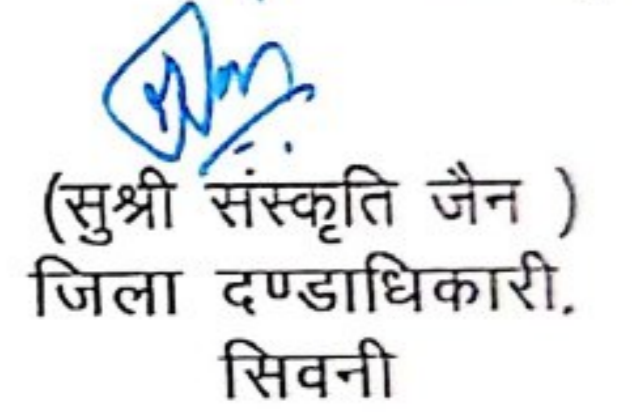 (सुश्री संस्कृति जैन )
जिला दण्डाधिकारी.
सिवनी